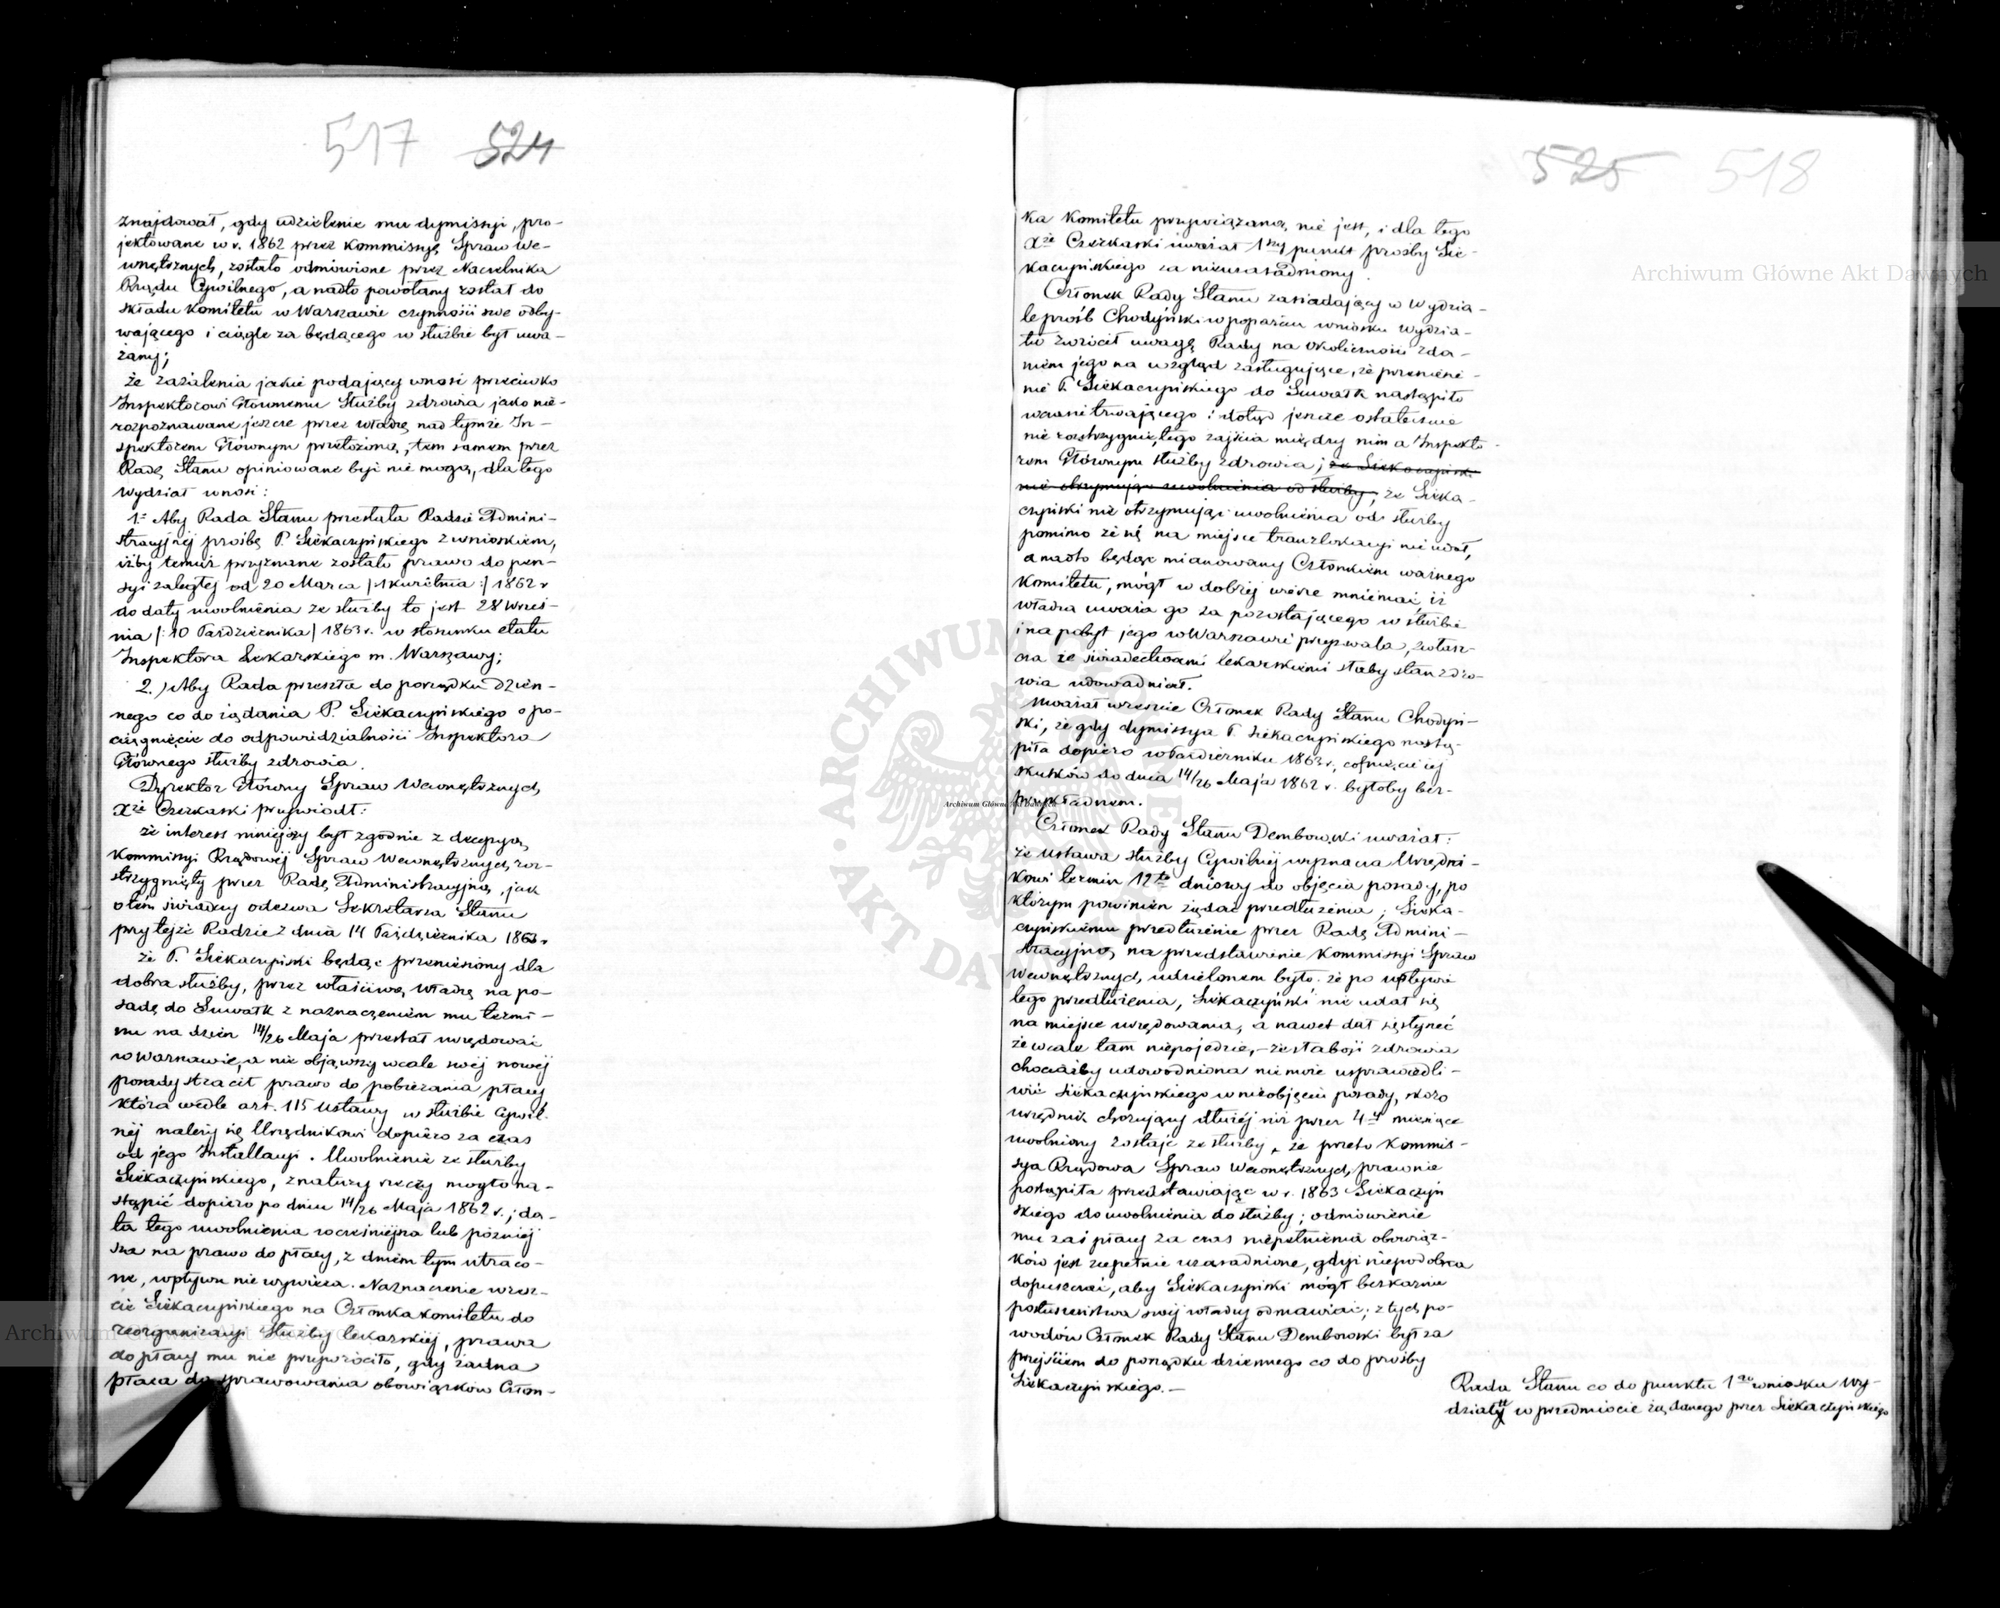 517 524
znajdował, gdy udzielenie mu dymissyi, pro-
jektowane w r. 1862 przez Kommissyę Spraw We-
wnętrznych, zostało odmówione przez Naczelnika
Rządu Cywilnego, a nadto powołany został do
składu Komitetu w Warszawie czynności swe odby-
wającego i ciągle za będącego w służbie był uwa-
żany;
że zażalenia jakie podający wnosi przeciwko
Inspektorowi Głównemu Służby zdrowia jako nie-
rozpoznawane jeszcze przez władzę nad tymże In-
spektorem Głównym przełożoną, tem samem przez
Radę Stanu opiniowane być nie mogą, dla tego
Wydział wnosi:
1.= Aby Rada Stanu przesłała Radzie Admini-
stracyjnej prośbę P. Siekaczyńskiego z wnioskiem,
iżby temuż przyznane zostało prawo do pen-
syi zaległej od 20 Marca /:1 Kwietnia:/ 1862 r
do daty uwolnienia ze służby to jest 28 Wrześ-
nia /:10 Października/ 1863 r. w stosunku etatu
Inspektora Lekarskiego m. Warszawy;
2.) Aby Rada przeszła do porządku dzien-
nego co do żądania P. Siekaczyńskiego o po-
ciągnięcie do odpowiedzialności Inspektora
Głównego służby zdrowia.
Dyrektor Główny Spraw Wewnętrznych,
Xże Czerkaski przywiódł:
że interess niniejszy był zgodnie z decyzyą
Kommissyi Rządowej Spraw Wewnętrznych, roz-
strzygnięty przez Radę Administracyjną, jak
o tém świadczy odezwa Sekretarza Stanu
przy tejże Radzie z dnia 14 Października 1863 r
że P. Siekaczyński będąc przeniesiony dla
dobra służby, przez właściwą władzę na po-
sadę do Suwałk z naznaczeniem mu termi-
nu na dzień 14/26 Maja przestał urzędować
w Warszawie, a nie objąwszy wcale swéj nowej
posady stracił prawo do pobierania płacy
która wedle art. 115 Ustawy o służbie Cywil-
néj należy się Urzędnikowi dopiero za czas
od jego Installacyi. Uwolnienie ze służby
Siekaczyńskiego, z natury rzeczy mogło na-
stąpić dopiero po dniu 14/26 Maja 1862 r.; da-
ta tego uwolnienia wcześniejsza lub póżniej
sza na prawo do płacy, z dniem tym utraco-
ne, wpływu nie wywiera. Naznaczenie wresz-
cie Siekaczyńskiego na Członka Komitetu do
reorganizacyi Służby lekarskiej, prawa
do płacy mu nie przywróciło, gdy żadna
płaca do sprawowania obowiązków Człon-
525 518
ka Komitetu przywiązaną nie jest, i dla tego
Xże Czerkaski uważał 1szy punkt prośby Sie-
kaczyńskiego za nieuzasadniony.
Członek Rady Stanu zasiadający w Wydzia-
le próśb Chodyński w poparciu wniosku Wydzia-
łu zwrócił uwagę Rady na okoliczności zda-
niem jego na wzgląd zasługujące, że przeniesie-
nie P. Siekaczyńskiego do Suwałk nastąpiło
w czasie trwającego i dotąd jeszcze ostatecznie
nie rozstrzygniętego zajścia między nim a Inspekto-
rem Głównym służby zdrowia; że Siekaczyński
nie otrzymując uwolnienia od służby, że Sieka-
czyński nie otrzymując uwolnienia od służby
pomimo że się na miejsce translokacyi nie udał,
a nadto będąc mianowany Członkiem ważnego
Komitetu, mógł w dobrej wierze mniemać, iż
władza uważa go za pozostającego w służbie
i na pobyt jego w Warszawie przyzwala, zwłasz-
cza że świadectwami lekarskiemi słaby stan zdro-
wia udowadniał.
Uważał wreszcie Członek Rady Stanu Chodyń-
ski, że gdy dymissya P. Siekaczyńskiego nastą-
piła dopiero w Październiku 1863 r., cofnięcie jej
skutków do dnia 14/26 Maja 1862 r. byłoby bez-
przykładnem.
Członek Rady Stanu Dembowski uważał:
że Ustawa służby Cywilnéj wyznacza Urzędni-
kowi termin 12to dniowy do objęcia posady, po
którym powinien żądać przedłużenia; Sieka-
czyńskiemu przedłużenie przez Radę Admini-
stracyjną na przedstawienie Kommissyi Spraw
Wewnętrznych, udzielonem było. że po upływie
tego przedłużenia, Siekaczyński nie udał się
na miejsce urzędowania, a nawet dał się słyszeć
że wcale tam niepojedzie, - że słabość zdrowia
chociażby udowodniona nie może usprawiedli-
wić Siekaczyńskiego w nieobjęciu posady, skoro
urzędnik chorujący dłużéj niż przez 4ry miesiące
uwolniony zostaje ze służby, że przeto Kommis-
sya Rządowa Spraw Wewnętrznych, prawnie
postąpiła przedstawiając w r. 1863 Siekaczyń
skiego do uwolnienia do służby; odmówienie
mu zaś płacy za czas niepełnienia obowiąz-
ków jest zupełnie uzasadnione, gdyż niepodobna
dopuszczać, aby Siekaczyński mógł bezkarnie
posłuszeństwa swéj władzy odmawiać; z tych po-
wodów Członek Rady Stanu Dembowski był za
przejściem do porządku dziennego co do prośby
Siekaczyńskiego. -
Rada Stanu co do punktu 1go wniosku Wy-
działu w przedmiocie żądanego przez Siekaczyńskiego
Archiwum Główne Akt Dawnych
Archiwum Główne Akt Dawnych
Archiwum Główne Akt Dawnych
ARCHIWUM GŁÓWNE AKT DAWNYCH